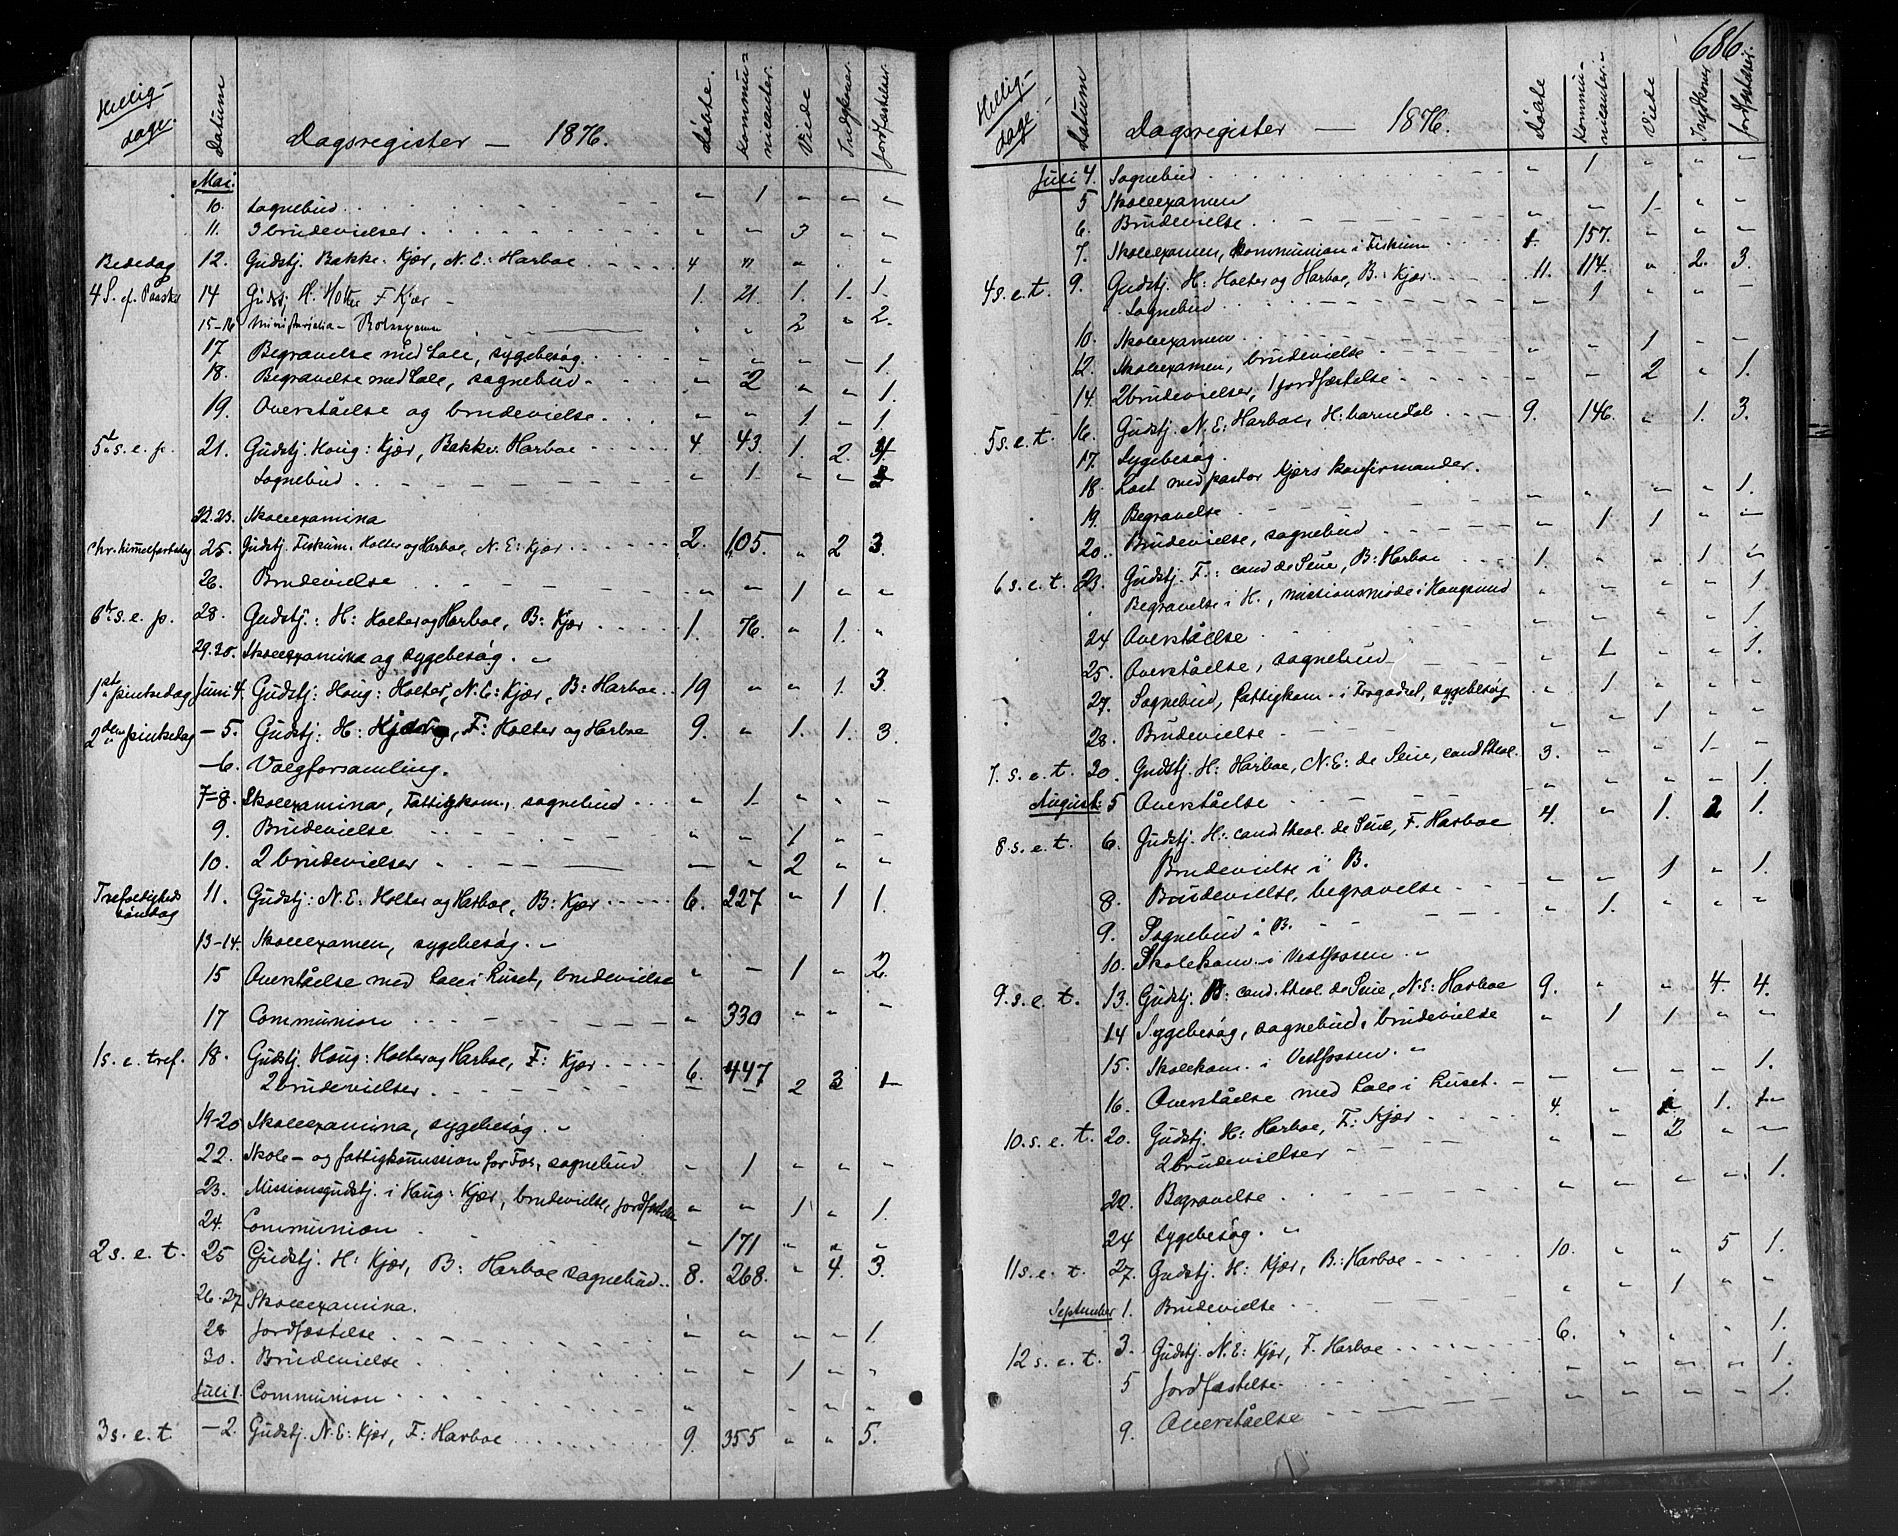 Hellig-
dage.
Datum
Dagsregister — 1876.
Døbte.
Kommu-
nicanter.
Viede
Indgkoner
Jordfæstelser.
Mai.
10. Sognebud . . . " 1 " " "
11. 3 brudevielser . . . " " 3 " "
Bededag 12. Gudstj. Bakke. Kjær, N. E: Harboe . . . 4 " " " "
4 S. ef. Paaske 14 Gudstj. H. Holter F Kjær — 1. 21. 1. 1. 1.
15-16 Ministerialia — " " 2 " 2.
17 Begravelse med Tale, sygebesøg . . . " " " — 1.
18. Begravelse med Tale, sognebud . . . " 2 " " 1.
19. Overståelse og brudevielse . . . " " 1 — 1.
5t s. e. p. 21. Gudstj. Houg: Kjær, Bakke. Harboe — 4 43. 1. 2. 4.
Sognebud . . . " 1. " "
22. 23. Skoleexamina
chr. himmelfartsdag 25. Gudstj. Fiskum: Holter og Harboe, N. E: Kjær . . . 2. 105. " 2 3.
26. Brudevielse . . . " " 1 " "
6t s. e. p. 28. Gudstj.: H: Holter og Harboe, B: Kjær . . . 1. 76. " 1. "
29.30. Skoleexamina og sygebesøg. "
1st pintsedag Juni 4. Gudstj: Houg: Holter, N. E: Kjær, B: Harboe . . 19 " " 1. 3.
2den pintsedag — 5. Gudstj: H: Kjær, F: Holter og Harboe 9. " 1. 1. 3.
— 6. Valgforsamling.
7-8. Skoleexamina, Fattigkom., sognebud . . . " 1. " " "
9. Brudevielse . . . " " 1 " —
10. 2 brudevielser . . . — " 2 " "
Trefoldigheds
søndag 11. Gudstj: N. E: Holter og Harboe, B: Kjær . . . 6. 227 " 1 1.
13-14. Skoleexamen, sygebesøg. "
15 Overståelse med Tale i huset, brudevielse " — 1 " 2.
17 Communion . . . " 330 " " —
1 s. e. tref. 18. Gudstj. Houg: Holter og Harboe, F: Kjær . . . 6. 447
2 brudevielser . . . — — 2 3 1
19-20 Skoleexamina, sygebesøg "
22. Skole- og fattigkommission for For, sognebud " 1 " " "
23. Missionsgudstj. i Houg: Kjær, brudevielse, jordfæstelse " " 1 " 1.
24. Communion . . . " 171 " " "
2 s. e. t. 25 Gudstj. H: Kjær, B: Harboe sognebud . . 8. 268. " 4. 3.
26-27 Skoleexamina.
28 Jordfæstelse . . . " " " " 1.
30. Brudevielse . . . " " 1 " "
Juli 1. Communion . . . " " " "
3 s. e. t — 2. Gudstj. N. E: Kjær, F: Harboe . . . 9. 355 " " 5.
686.
Hellig-
dage.
Datum
Dagsregister — 1876.
Døbte
Kommu-
nicanter.
Viede
Ingdkoner
Jordfæstelser.
Juli 4. Sognebud . . . " 1 " " "
5 Skoleexamen
6. Brudevielse . . . " " 1. " "
7. Skoleexamen, kommunion i Fiskum . . . 157. " " "
4 s. e. t. 9. Gudstj. H: Holter og Harboe, B: Kjær . . . 11. 114. " 2. 3.
Sognebud . . . — 1 " " —
10. Skoleexamen
12. Skoleexamen, brudevielse . . . " " 1 — —
14. 2 brudevielser, 1 jordfæstelse . . . " " 2 " 1.
5 s. e. t. 16. Gudstj. N. E: Harboe, H: barnedåb . . . 9. 146. " 1. 3.
17. Sygebesøg.
18. Læst med pastor Kjærs konfirmander.
19. Begravelse . . . " " — " 1.
20. Brudevielse, sognebud . . . — 1 1 " —
6 s. e. t. 23. Gudstj. F: cand de Seue, B: Harboe . . . 1. " " 1 "
Begravelse i H., missionsmøde i Hougsund " " " " 1.
24 Overståelse . . . " " " " 1.
25. Overståelse, sognebud . . . 1 " " 1.
27. Sognebud, Fattigkom. i sygebesøg " 1 " " "
28. Brudevielse . . . " " 1 " "
7. s. e. t 30. Gudstj. H: Harboe, N. E: de Seue, cand theol. 3. " " 1. "
August: 5 Overståelse . . . " " " " 1.
8. s. e. t. 6. Gudstj. H: cand. theol. de Seue, F. Harboe 4. " 1. 2 1.
Brudevielse i B.
8. Brudevielse, begravelse . . . — " 1 " 1.
9. Sognebud i B. . . . " 1. " " "
10. Skolekom. i Vestfossen "
9. s. e. t. 13. Gudstj. B: cand. theol. de Seue, N. E: Harboe 9. " " 4 4.
14 Sygebesøg, sognebud, brudevielse " 1 1 " "
15. Skolekom. i Vestfossen "
16. Overståelse med Tale i huset. — — " " " 1.
10. s. e. t. 20. Gudstj. H: Harboe, F: Kjær . . . 4. " 1.
2 brudevielser . . . " " 2 " —
22. Begravelse . . . " " — " 1.
24 Sygebesøg. "
11 s. e. t. 27. Gudstj. H: Kjær, B: Harboe . . . 10. " " 5 1.
September 1. Brudevielse . . . " " 1 " "
12 s. e. t. 3. Gudstj. N. E: Kjær, F. Harboe . . . 6. " " " 1.
5 Jordfæstelse . . . " " " " 1.
9. Overståelse . . . " " " " 1.